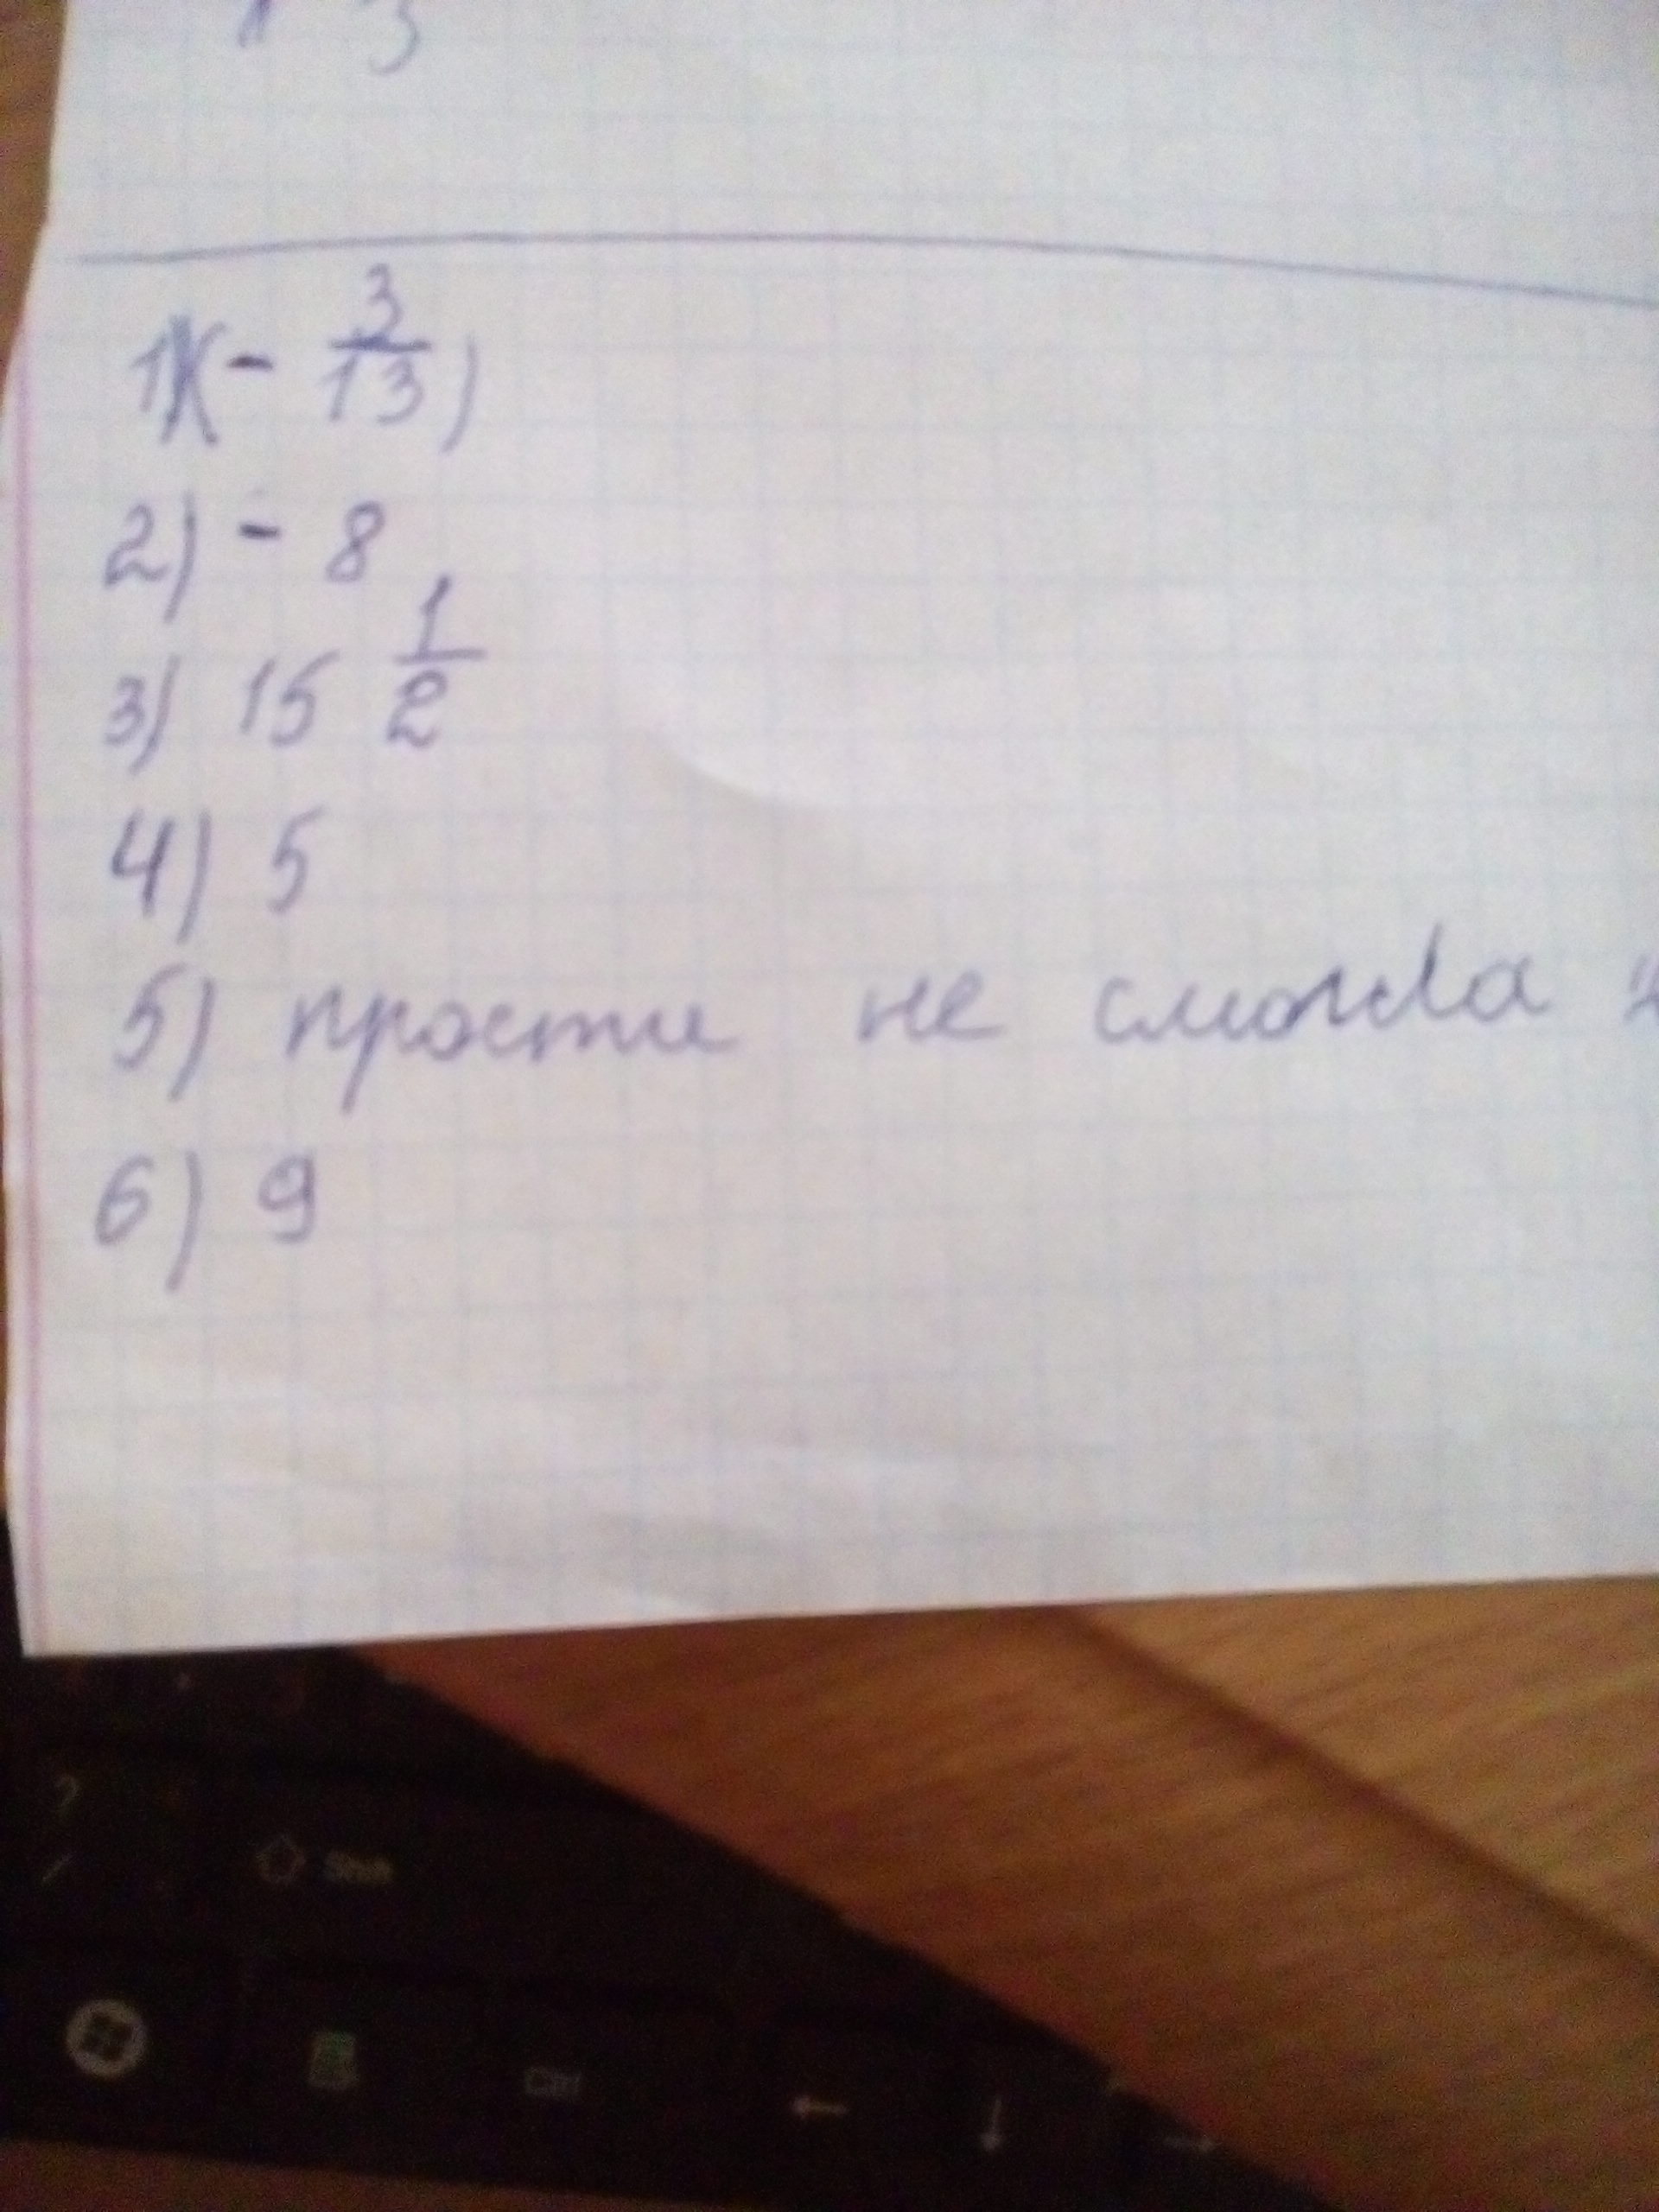 3
1) (- 3/13)
2) - 8
3) 15 1/2
4) 5
5) прости не смогла
6) 9
?
/
Shift
Ctrl
← ↓ →